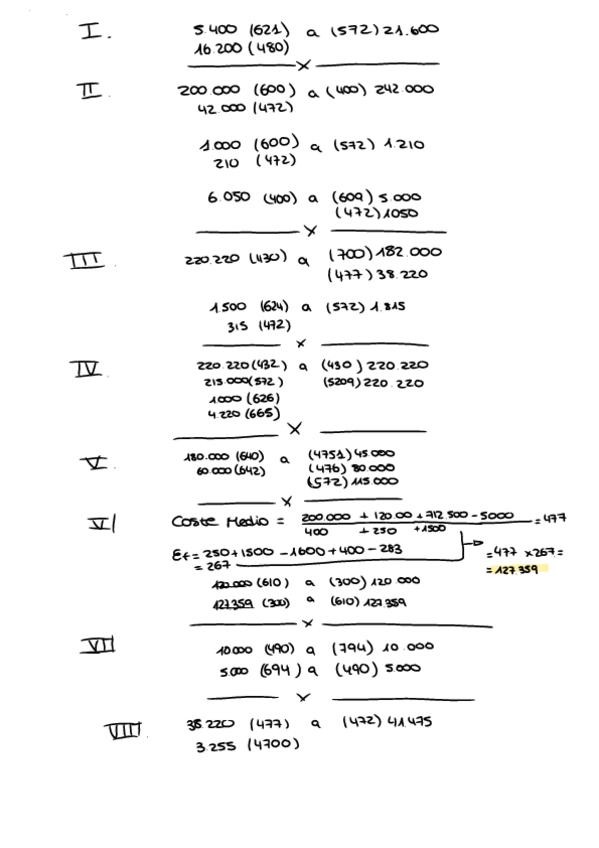 I. 5.400 (621) a (572) 21.600
16.200 (480)
x
II 200.000 (600) a (400) 242.000
42.000 (472)
1.000 (600) a (572) 1.210
210 (472)
6.050 (400) a (609) 5.000
(472) 1050
x
III. 220.220 (430) a (700) 182.000
(477) 38.220
1.500 (624) a (572) 1.815
315 (472)
x
IV 220.220 (432) a (430) 220.220
215.000 (572) (5209) 220.220
1000 (626)
4.220 (665)
x
V. 180.000 (640) a (4751) 45000
60000 (642) (476) 80000
(572) 115.000
x
VI Coste Medio = 200.000 + 120.00 + 712 500 - 5000 = 477
400 + 250 + 1500
Ef = 250 + 1500 - 1600 + 400 - 283 = 477 x 267 =
= 267 = 127 359
120.000 (610) a (300) 120 000
127.359 (300) a (610) 127.359
x
VII 10000 (490) a (794) 10.000
5000 (694) a (490) 5.000
x
VIII. 38.220 (477) a (472) 41475
3.255 (4700)